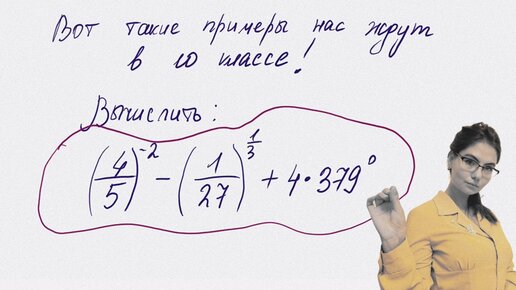 Вот такие примеры нас ждут
в 10 классе!
Вычислить:
(4/5)^-2 - (1/27)^1/3 + 4 · 379^0